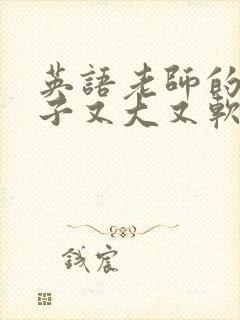 英語老師的
子又大又軟
錢宸